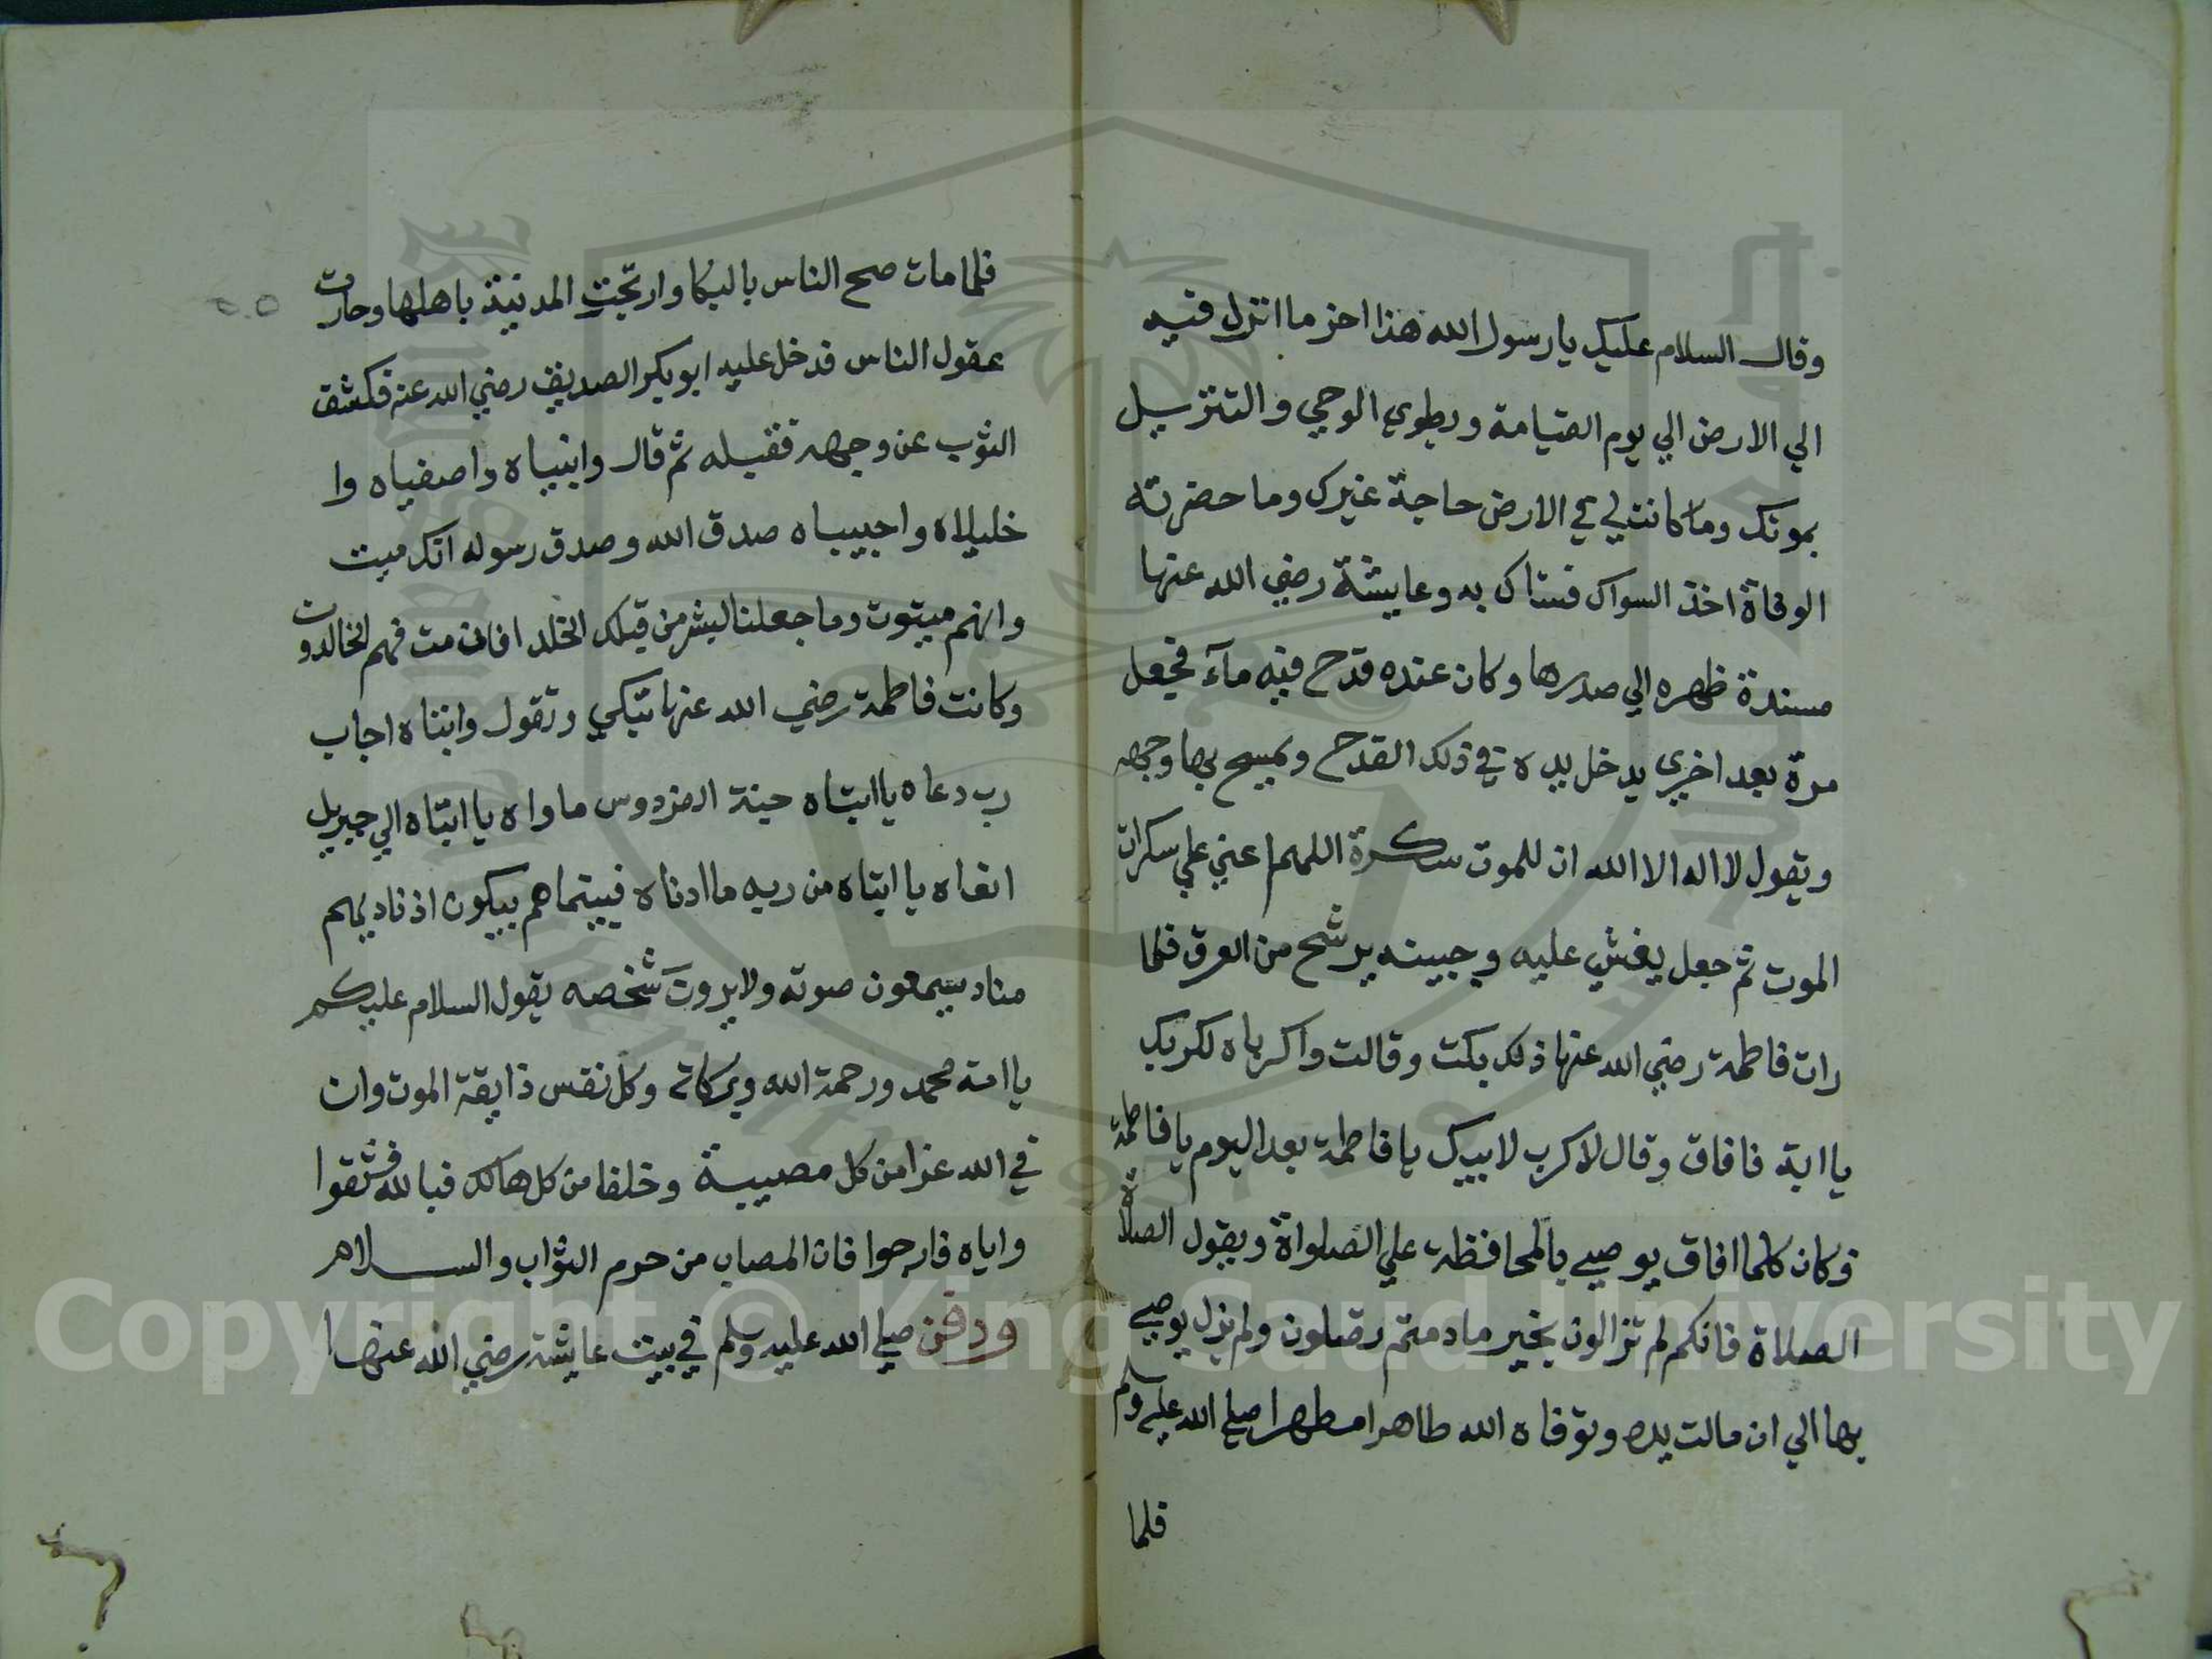 وقال السلام عليك يا رسول الله هذا اخر ما انزل فيه
الي الارض الي يوم القيامة ويطوي الوحي والتنزيل
بموتك وما كانت لي في الارض حاجة غيرك وما حضرته
الوفاة اخذ السواك فستاك به وعايشة رضي الله عنها
مسندة ظهره الي صدرها وكان عنده قدح فيه مآء فجعل
مرة بعد اخري يدخل يده في ذلك القدح ويمسح بها وجهه
ويقول لا اله الا الله ان للموت سكرة اللهم اعني علي سكرات
الموت ثم جعل يغشي عليه وجبينه يرشح من العرق فلما
رات فاطمة رضي الله عنها ذلك بكت وقالت واكرباه لكربك
يا ابة فافاق وقال لا كرب لابيك يا فاطمة بعد اليوم يا فاطمة
فكان كلما افاق يوصي بالمحافظة علي الصلواة ويقول الصلاة
الصلاة فانكم لم تزالون بخير ما دمتم تصلون ولم يزل يوصي
بها الي ان مالت يده وتوفاه الله طاهرا مطهرا صلي الله عليه وسلم
فلما
فلما مات صح الناس بالبكا وارتجت المدينة باهلها وحارت
عقول الناس فدخل عليه ابو بكر الصديق رضي الله عنه فكشف
الثوب عن وجهه فقبله ثم قال وانبياه واصفياه وا
خليلاه واحبيباه صدق الله وصدق رسوله انك ميت
وانهم ميتون وما جعلنا لبشر من قبلك الخلد افان مت فهم الخالدون
وكانت فاطمة رضي الله عنها تبكي وتقول وابتاه اجاب
رب دعاه يا ابتاه جنة الفردوس ماواه يا ابتاه الي جبريل
انعاه يا ابتاه من ربه ما ادناه فبينما هم يبكون اذ ناديهم
مناد يسمعون صوته ولا يرون شخصه يقول السلام عليكم
يا امة محمد ورحمة الله وبركاته وكل نفس ذايقة الموت وان
في الله عزا من كل مصيبة وخلفا من كل هالك فبالله فثقوا
واياه فارجوا فان المصاب من حرم الثواب والسلام
ودفن صلي الله عليه وسلم في بيت عايشة رضي الله عنها
Copyright © King Saud University
1957